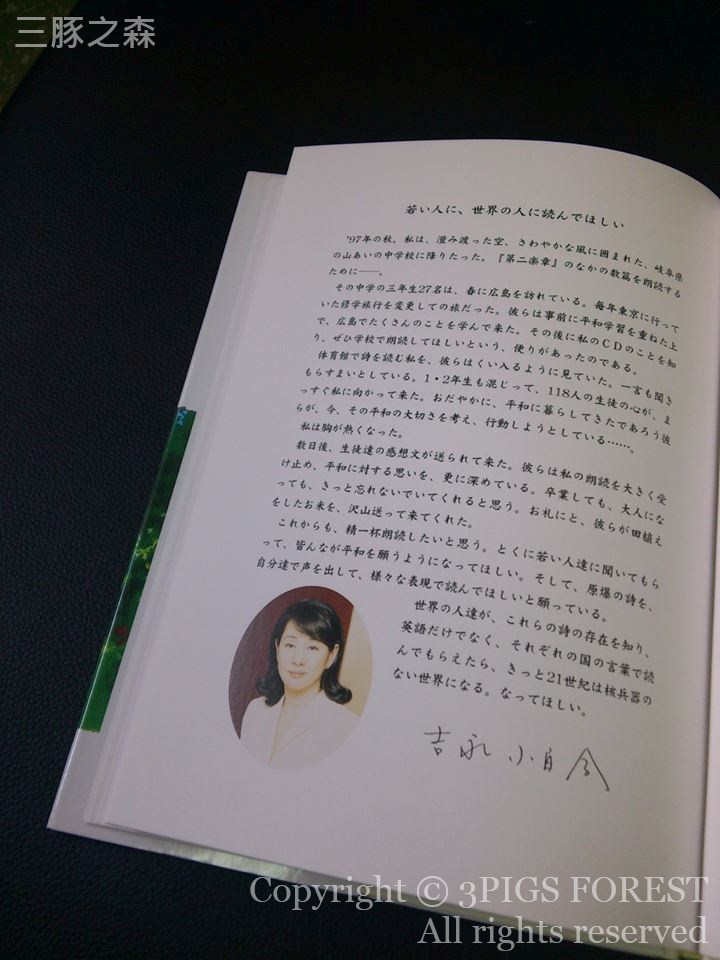 三豚之森
若い人に、世界の人に読んでほしい
'97年の秋。私は、澄み渡った空、さわやかな風に囲まれた、岐阜県
の山あいの中学校に降りたった。『第二楽章』のなかの数篇を朗読する
ために――。
その中学の三年生27名は、春に広島を訪れている。毎年東京に行って
いた修学旅行を変更しての旅だった。彼らは事前に平和学習を重ねた上
で、広島でたくさんのことを学んで来た。その後に私のCDのことを知
り、ぜひ学校で朗読してほしいという、便りがあったのである。
体育館で詩を読む私を、彼らはくい入るように見ていた。一言も聞き
もらすまいとしている。1・2年生も混じって、118人の生徒の心が、ま
っすぐ私に向かって来た。おだやかに、平和に暮らしてきたであろう彼
らが、今、その平和の大切さを考え、行動しようとしている……。
私は胸が熱くなった。
数日後、生徒達の感想文が送られて来た。彼らは私の朗読を大きく受
け止め、平和に対する思いを、更に深めている。卒業しても、大人にな
っても、きっと忘れないでいてくれると思う。お礼にと、彼らが田植え
をしたお米を、沢山送って来てくれた。
これからも、精一杯朗読したいと思う。とくに若い人達に聞いてもら
って、皆んなが平和を願うようになってほしい。そして、原爆の詩を、
自分達で声を出して、様々な表現で読んでほしいと願っている。
世界の人達が、これらの詩の存在を知り、
英語だけでなく、それぞれの国の言葉で読
んでもらえたら、きっと21世紀は核兵器の
ない世界になる。なってほしい。
吉永小百合
Copyright © 3PIGS FOREST
All rights reserved